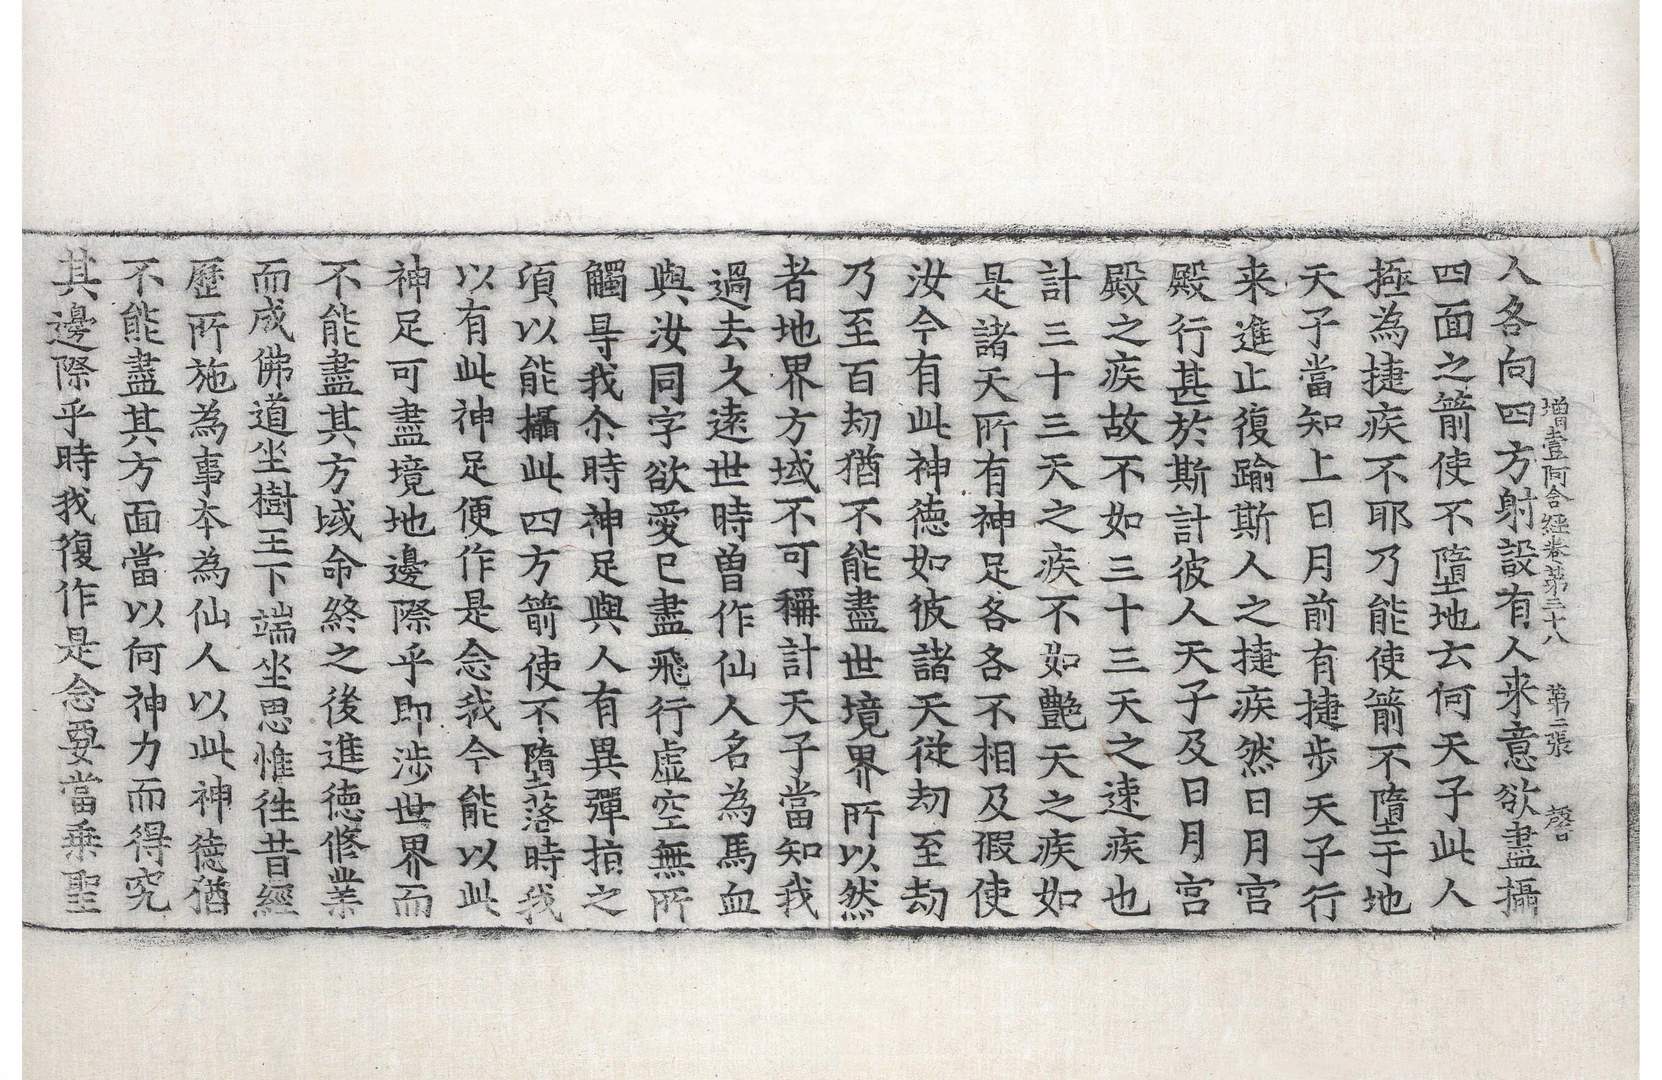 增壹阿含經卷第三十八 第二張 磬
人各向四方射設有人来意欲盡攝
四面之箭使不墮地云何天子此人
極為捷疾不耶乃能使箭不墮于地
天子當知上日月前有捷步天子行
来進止復踰斯人之捷疾然日月宮
殿行甚於斯計彼人天子及日月宮
殿之疾故不如三十三天之速疾也
計三十三天之疾不如豔天之疾如
是諸天所有神足各各不相及假使
汝今有此神德如彼諸天從劫至劫
乃至百劫猶不能盡世境界所以然
者地界方域不可稱計天子當知我
過去久遠世時曽作仙人名為馬血
與汝同字欲愛已盡飛行虛空無所
觸㝵我尒時神足與人有異彈指之
頃以能攝此四方箭使不墮落時我
以有此神足便作是念我今能以此
神足可盡境地邊際乎即涉世界而
不能盡其方域命終之後進德修業
而成佛道坐樹王下端坐思惟往昔經
歷所施為事本為仙人以此神德猶
不能盡其方面當以何神力而得究
其邊際乎時我復作是念要當乗聖